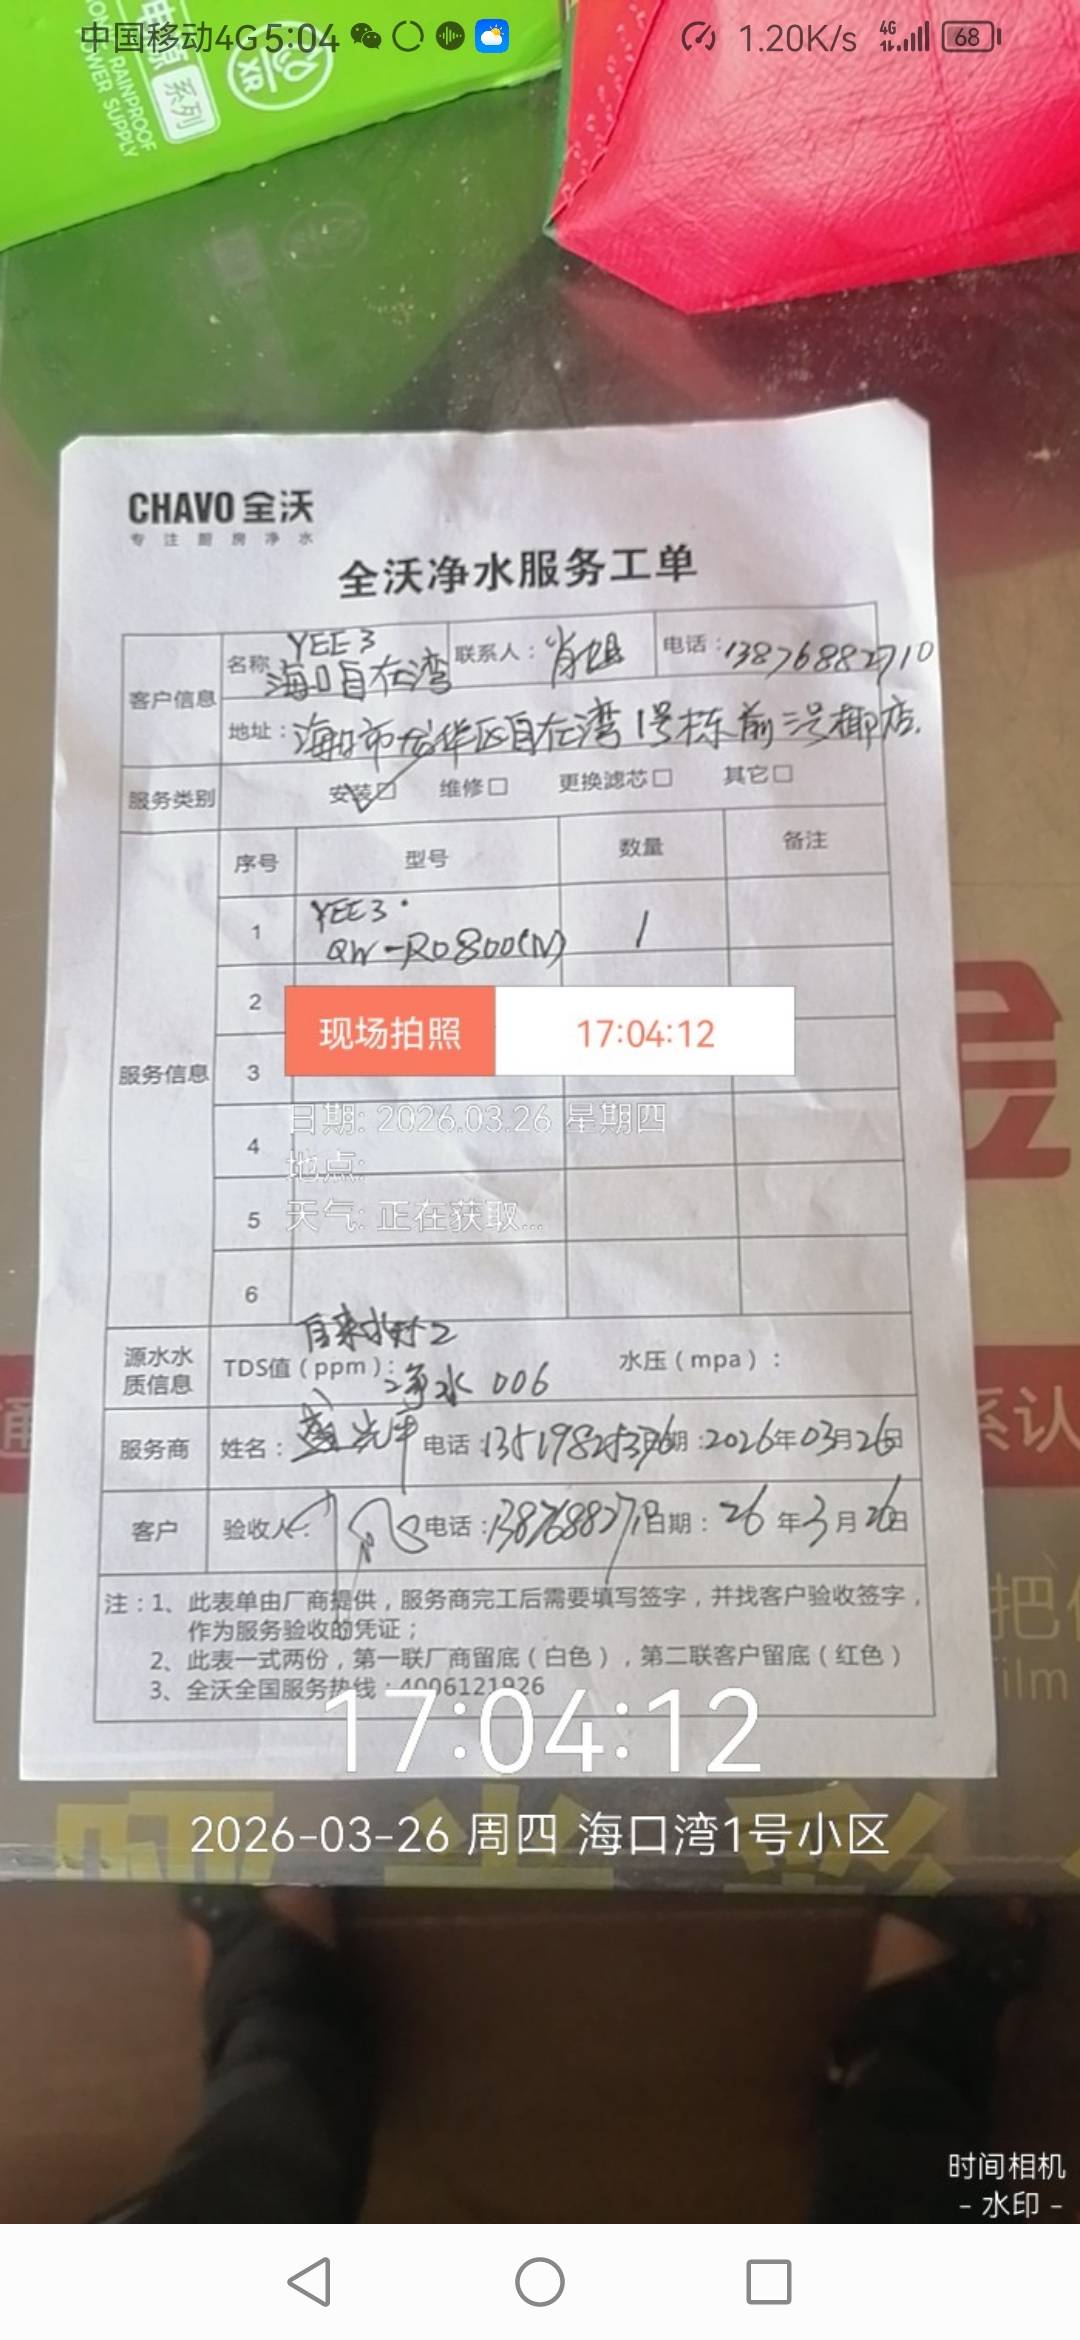 中国移动4G 5:04 1.20K/s 4G 68
电源
系列
XR
RAINPROOF
POWER SUPPLY
CHAVO 全沃
专注厨房净水
全沃净水服务工单
客户信息
名称 YEE3 海口自在湾 联系人: 肖姐 电话: 13876882710
地址: 海口市龙华区自在湾1号栋前三号椰店.
服务类别 安装☑ 维修□ 更换滤芯□ 其它□
服务信息
序号 型号 数量 备注
1 YEE3· QW-RO800(N) 1
2
现场拍照 17:04:12
3
日期: 2026.03.26 星期四
4
地点:
5 天气: 正在获取...
6
源水水质信息 TDS值(ppm): 自来水 净水 006 水压(mpa):
服务商 姓名: 电话: 日期: 2026年03月26日
客户 验收人: 电话: 日期: 26年3月26日
注:1、此表单由厂商提供,服务商完工后需要填写签字,并找客户验收签字,
作为服务验收的凭证;
2、此表一式两份,第一联厂商留底(白色),第二联客户留底(红色)
3、全沃全国服务热线:4006121926
17:04:12
2026-03-26 周四 海口湾1号小区
系认
把
film
时间相机
- 水印 -